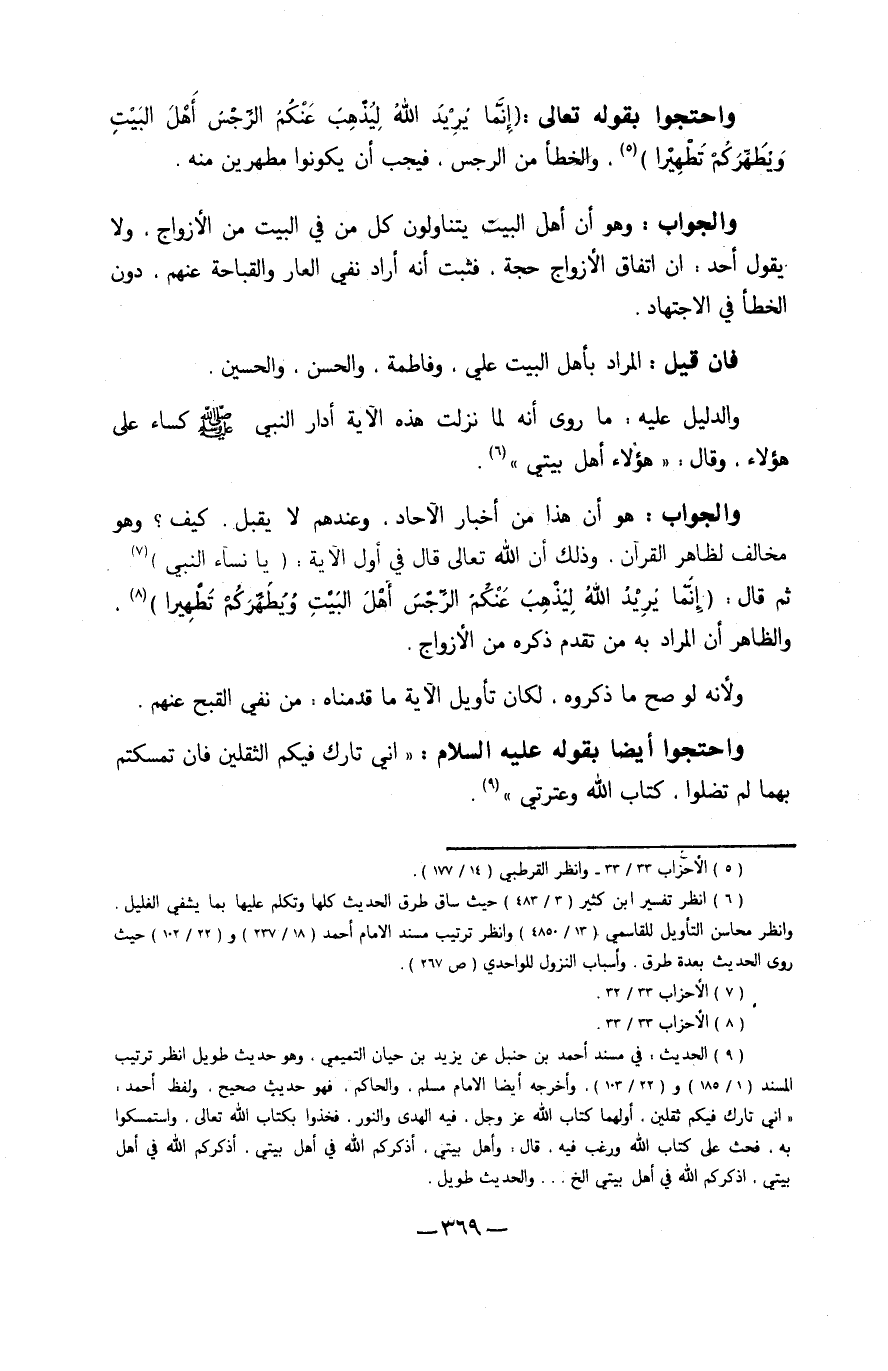 واحتجوا بقوله تعالى :(إِنَّمَا يُرِيْدَ اللهُ لِيُذْهِبَ عَنْكُمُ الرِّجْسَ أَهْلَ البَيْتِ
وَيَطَهِّرَكُمْ تَطْهِيْرا )(٥) ، والخطأ من الرجس ، فيجب أن يكونوا مطهرين منه .
والجواب : وهو أن أهل البيت يتناولون كل من في البيت من الأزواج ، ولا
يقول أحد : ان اتفاق الأزواج حجة ، فثبت أنه أراد نفي العار والقباحة عنهم ، دون
الخطأ في الاجتهاد .
فان قيل : المراد بأهل البيت علي ، وفاطمة ، والحسن ، والحسين .
والدليل عليه : ما روى أنه لما نزلت هذه الآية أدار النبي ﷺ كساء على
هؤلاء ، وقال : « هؤلاء أهل بيتي »(٦) .
والجواب : هو أن هذا من أخبار الآحاد ، وعندهم لا يقبل ، كيف ؟ وهو
مخالف لظاهر القرآن ، وذلك أن الله تعالى قال في أول الآية : ( يا نسآء النبي )(٧) .
ثم قال : (إِنَّمَا يُرِيْدُ اللهُ لِيُذْهِبَ عَنْكُمُ الرِّجْسَ أَهْلَ البَيْتِ وُيُطَهِّرَكُمْ تَطْهِيرا )(٨) ،
والظاهر أن المراد به من تقدم ذكره من الأزواج .
ولأنه لو صح ما ذكروه ، لكان تأويل الآية ما قدمناه : من نفي القبح عنهم .
واحتجوا أيضا بقوله عليه السلام : « اني تارك فيكم الثقلين فان تمسكتم
بهما لم تضلوا ، كتاب الله وعترتي »(٩) .
( ٥ ) الأحزاب ٣٣ / ٣٣ ـ وانظر القرطبي ( ١٤ / ١٧٧ ) .
( ٦ ) انظر تفسير ابن كثير ( ٣ / ٤٨٣ ) حيث ساق طرق الحديث كلها وتكلم عليها بما يشفي الغليل .
وانظر محاسن التأويل للقاسمي ( ١٣ / ٤٨٥٠ ) وانظر ترتيب مسند الامام أحمد ( ١٨ / ٢٣٧ ) و ( ٢٢ / ١٠٢ ) حيث
روى الحديث بعدة طرق . وأسباب النزول للواحدي ( ص ٢٦٧ ) .
( ٧ ) الأحزاب ٣٣ / ٣٢ .
( ٨ ) الأحزاب ٣٣ / ٣٣ .
( ٩ ) الحديث : في مسند أحمد بن حنبل عن يزيد بن حيان التميمي ، وهو حديث طويل انظر ترتيب
المسند ( ١ / ١٨٥ ) و ( ٢٢ / ١٠٣ ) ، وأخرجه أيضا الامام مسلم ، والحاكم ، فهو حديث صحيح ، ولفظ أحمد :
« اني تارك فيكم ثقلين ، أولهما كتاب الله عز وجل ، فيه الهدى والنور . فخذوا بكتاب الله تعالى ، واستمسكوا
به ، فحث على كتاب الله ورغب فيه ، قال : وأهل بيتي ، أذكركم الله في أهل بيتي ، أذكركم الله في أهل
بيتي ، اذكركم الله في أهل بيتي الخ . . . والحديث طويل .
— ٣٦٩ —